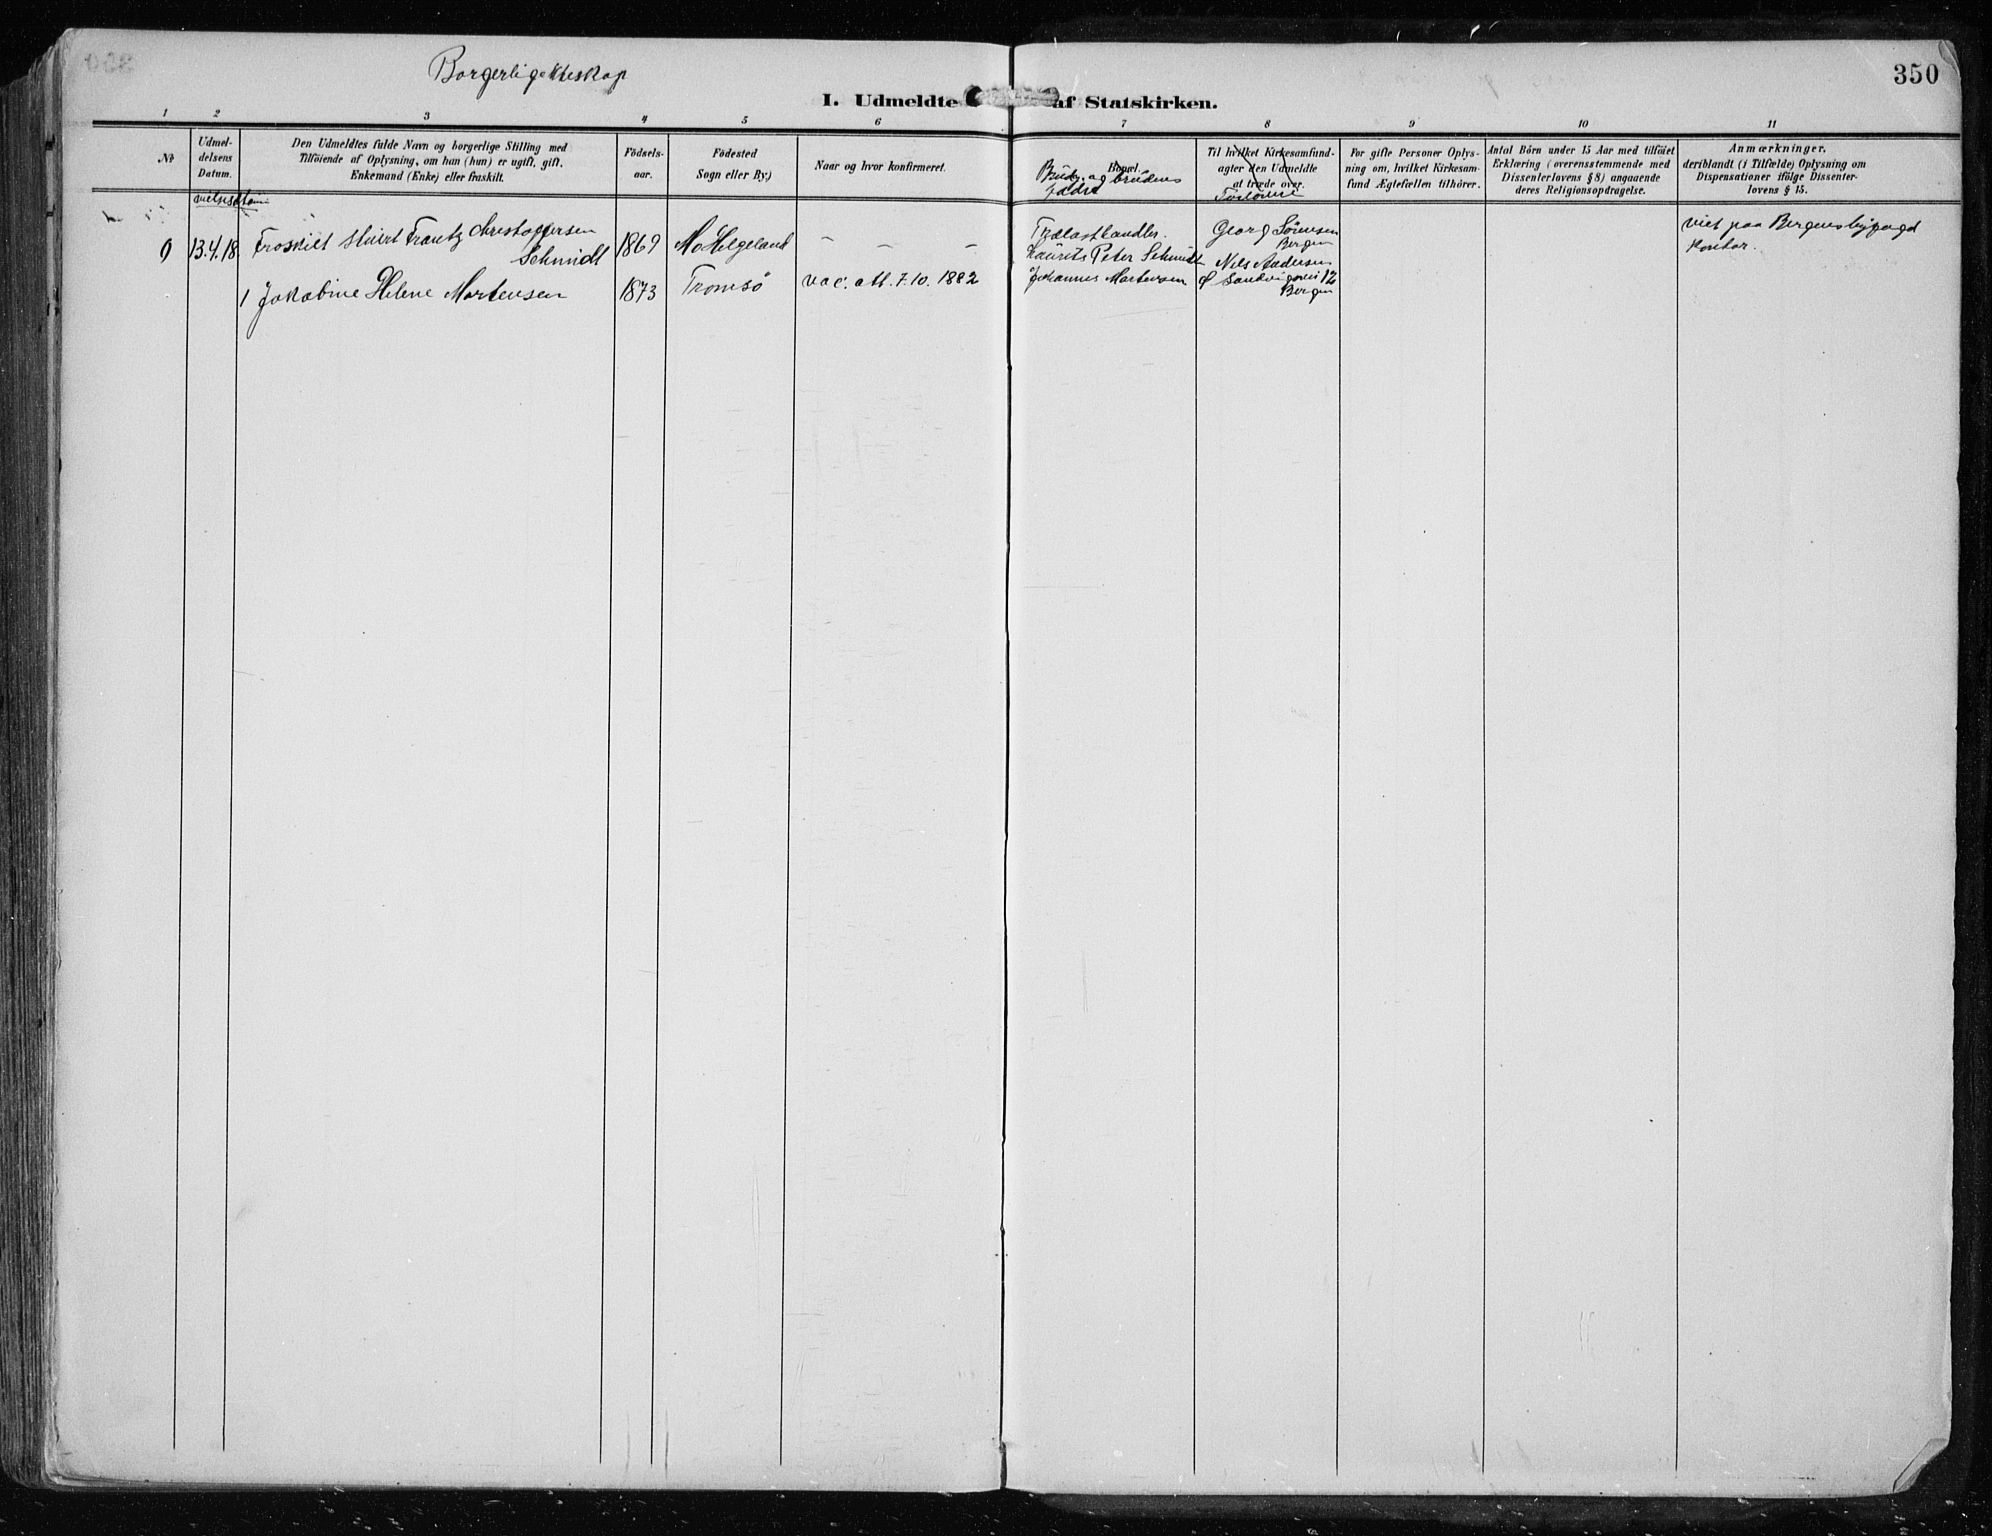 Borgerlig ekteskap
350
I. Udmeldte af Statskirken.
1 2 3 4 5 6 7 8 9 10 11
No
Udmel-
delsens
Datum.
Den Udmeldtes fulde Navn og borgerlige Stilling med
Tilföiende af Oplysning, om han (hun) er ugift, gift,
Enkemand (Enke) eller fraskilt.
Födsels-
aar.
Födested
Sogn eller By.)
Naar og hvor konfirmeret.
Bopæl.
Brudg. og brudens
fædre
Til hvilket Kirkesamfund-
agter den Udmeldte
at træde over.
Forlovere
For gifte Personer Oplys-
ning om, hvilket Kirkesam-
fund Ægtefællen tilhörer.
Antal Börn under 15 Aar med tilföiet
Erklæring (overensstemmende med
Dissenterlovens § 8) angaaende
deres Religionsopdragelse.
Anmærkninger,
deriblandt (i Tilfælde) Oplysning om
Dispensationer ifölge Dissenter-
lovens § 15.
13.4.18.
Fraskilt Frantz Christoffersen
Schmidt
1869
Mo Helgeland
Trælasthandler.
Laurits Peter Schmidt
Georg Sørensen
Bergen
viet paa Bergens byfogd
kontor.
1 Jakobine Helene Martensen
1873
Tromsö
vac. att. 7.10. 1882
Johannes Martensen
Nils Andersen
Sandvigsvei 12
Bergen